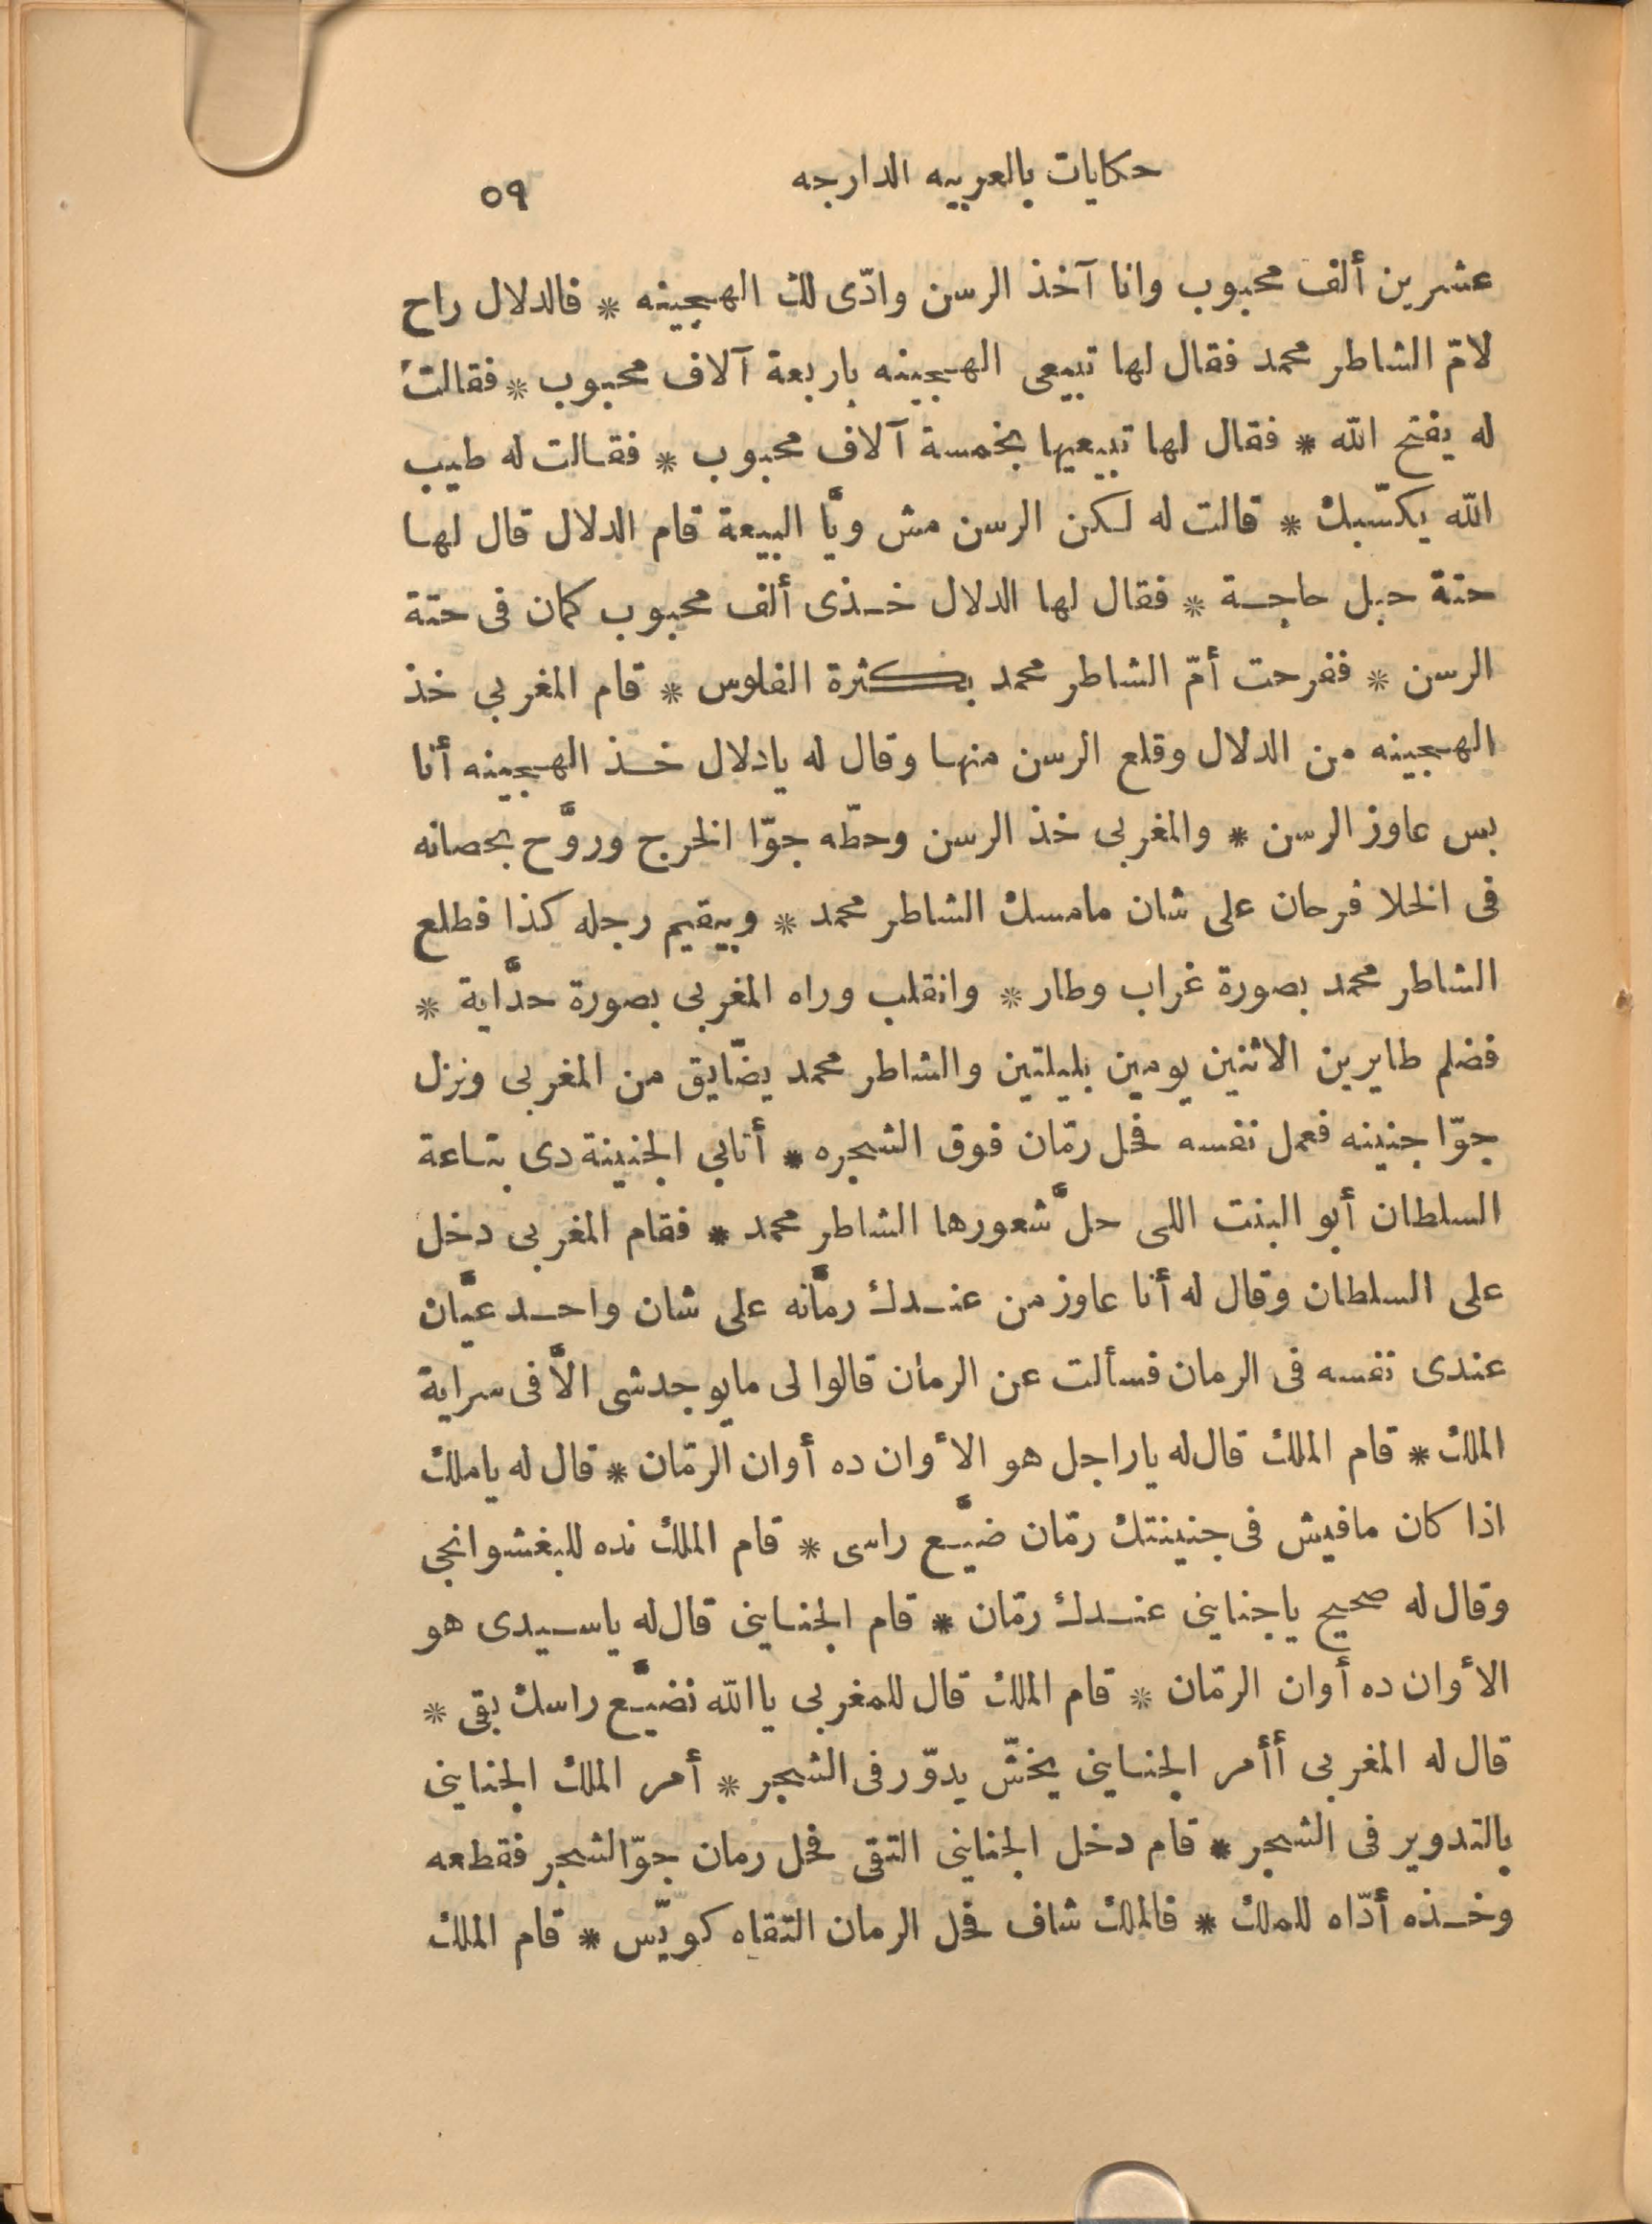 حكايات بالعربيه الدارجه
٥٩
عشرين ألف محبوب وانا آخذ الرسن وادّى لك الهجينه * فالدلال راح
لامّ الشاطر محمد فقال لها تبيعى الهجينه باربعة آلاف محبوب * فقالت
له يفتح الله * فقال لها تبيعيها بخمسة آلاف محبوب * فقالت له طيب
الله يكسّبك * قالت له لكن الرسن مش ويَّا البيعة قام الدلال قال لها
حتة حبل حاجة * فقال لها الدلال خذى ألف محبوب كمان فى حتة
الرسن * ففرحت أمّ الشاطر محمد بكثرة الفلوس * قام المغربى خذ
الهجينه من الدلال وقلع الرسن منها وقال له يادلال خذ الهجينه أنا
بس عاوز الرسن * والمغربى خذ الرسن وحطّه جوّا الخرج وروَّح بحصانه
فى الخلا فرحان على شان مامسك الشاطر محمد * وبيقيم رجله كذا فطلع
الشاطر محمد بصورة غراب وطار * وانقلب وراه المغربى بصورة حدَّاية *
فضلم طايرين الاثنين يومين بليلتين والشاطر محمد يضّايق من المغربى ونزل
جوّا جنينه فعمل نفسه فحل رمّان فوق الشجره * أتابى الجنينة دى بتاعة
السلطان أبو البنت اللى حلَّ شعورها الشاطر محمد * فقام المغربى دخل
على السلطان وقال له أنا عاوز من عندك رمَّانه على شان واحد عيَّان
عندى نفسه فى الرمان فسألت عن الرمان قالوا لى مايوجدشى الَّا فى سراية
الملك * قام الملك قال له ياراجل هو الأوان ده أوان الرمّان * قال له ياملك
اذا كان مافيش فى جنينتك رمّان ضيَّع راسى * قام الملك نده للبغشوانجى
وقال له صحيح ياجناينى عندك رمّان * قام الجناينى قال له ياسيدى هو
الأوان ده أوان الرمّان * قام الملك قال للمغربى ياالله نضيَّع راسك بقى *
قال له المغربى أأمر الجناينى يخشّ يدوّر فى الشجر * أمر الملك الجناينى
بالتدوير فى الشجر * قام دخل الجناينى التقى فحل رمان جوّا الشجر فقطعه
وخذه أدّاه للملك * فالملك شاف فحل الرمان التقاه كويّس * قام الملك